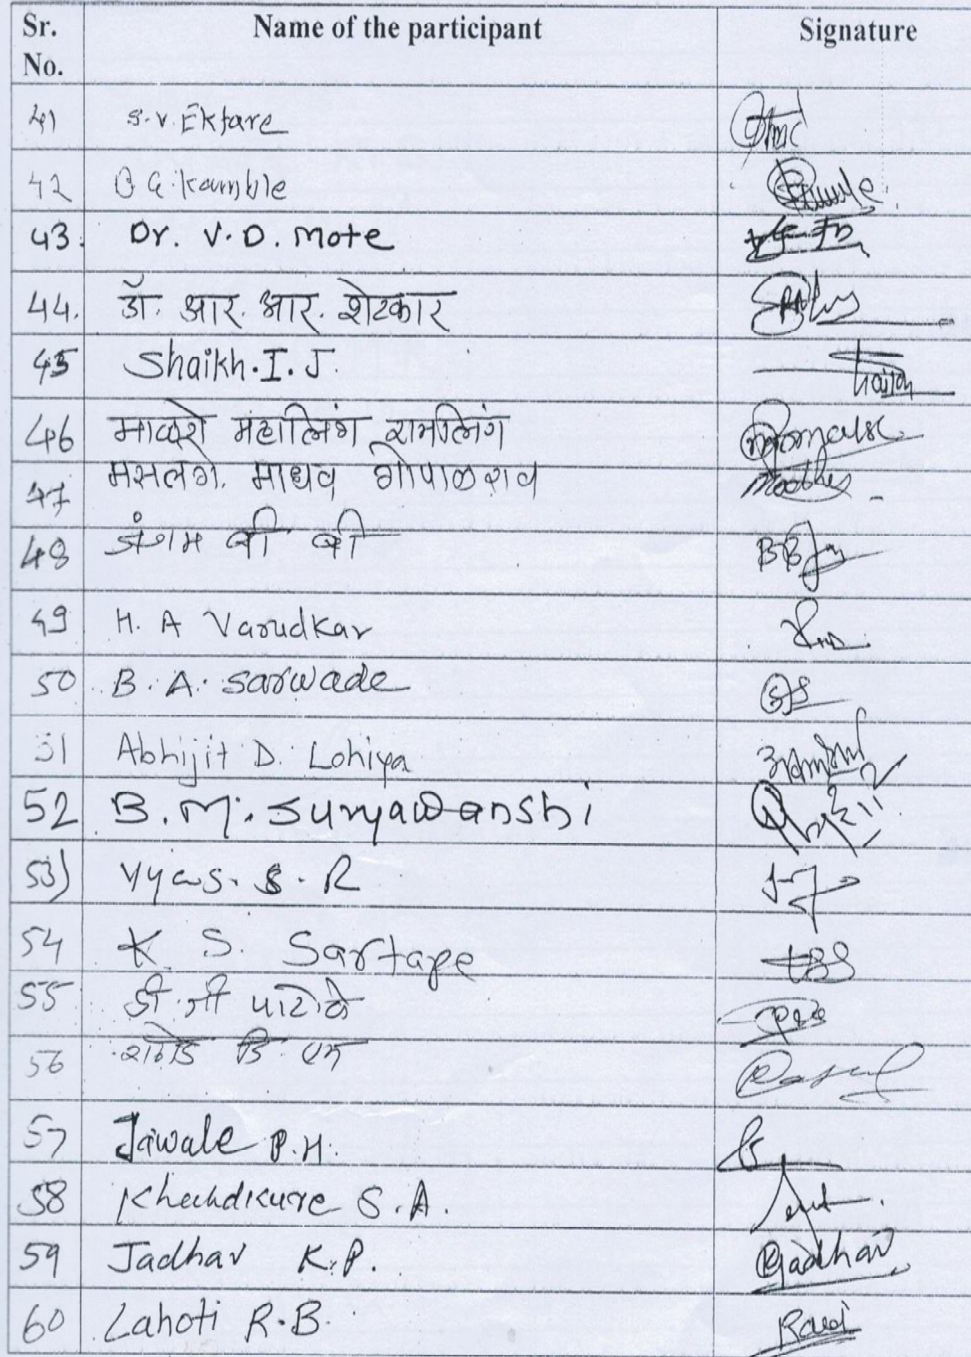 Sr. No. Name of the participant Signature
41 S.V. Ektare
42 B G. Kamble
43. Dr. V.D. Mote
44. डॉ. आर. आर. शेटकार
45 Shaikh. I. J.
46 माळगे महालिंग रामलिंग
47 मसलगे. माधव गोपाळराव Madhav
48 जंगम बी बी BB
49 H. A Varudkar
50 B. A. Sarwade
51 Abhijit D. Lohiya
52 B. M. Suryawanshi
53) Vyas. S. R
54 K S. Sartape
55 डी. जी
56 राठोड
57 Jawale P.H.
58 S.A.
59 Jadhav K.P. Jadhav
60 Lahoti R.B. Ravi